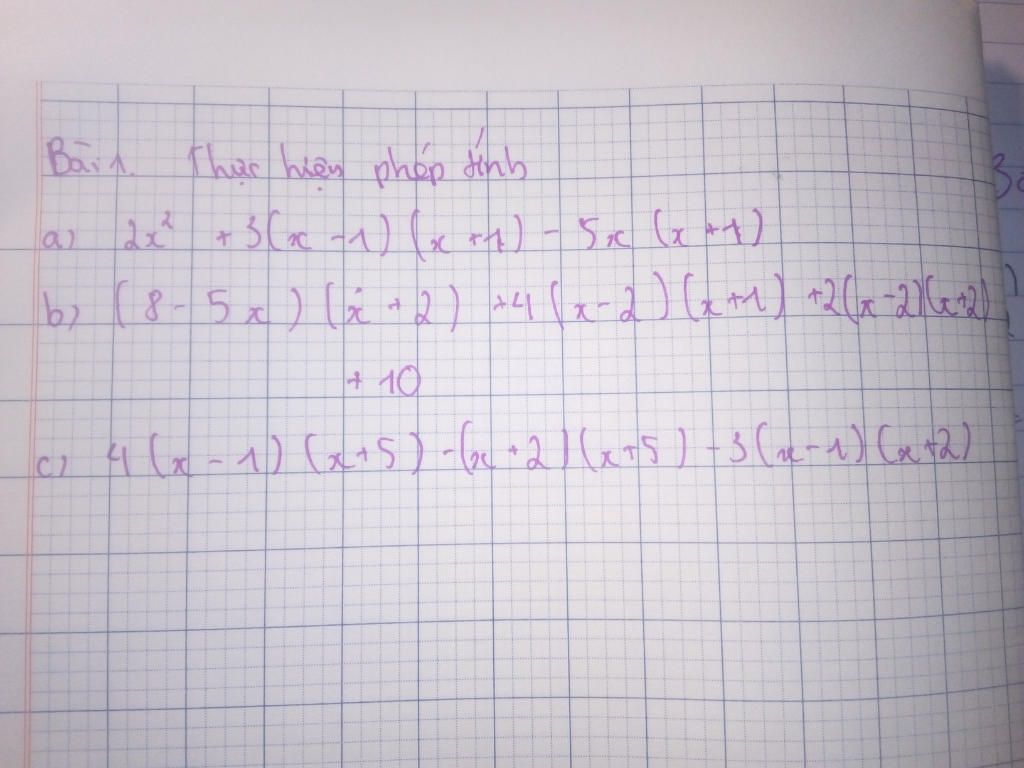 Bài 1. Thực hiện phép tính
a) 2x² + 3(x - 1)(x + 1) - 5x (x + 1)
b) (8 - 5x)(x + 2) + 4(x - 2)(x + 1) + 2(x - 2)(x + 2)
+ 10
c) 4(x - 1)(x + 5) - (x + 2)(x + 5) - 3(x - 1)(x + 2)